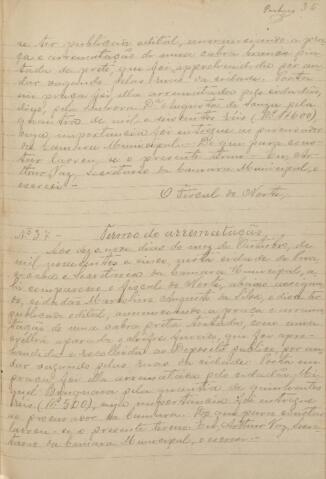 35
se ter publicado edital, annunciando a pra-
ça e arrematação de uma cabra branca pin-
tada de preto, que foi apprehendida por an-
dar vagando pelas ruas da cidade. Posta
em praça foi ella arrematada pelo cidadão,
digo, pela Senhora D. Augusta de Souza pela
quantia de mil e seiscentos reis (Rs 1$600)
cuja importancia foi entregue ao procurador
da Camara Municipal. De que para cons-
tar lavrou-se o presente termo. Eu, Ar-
thur Vaz, Secretario da Camara Municipal, o
escrevi.
O Fiscal do Norte,
Nº 37 - Termo de arrematação
Aos dezenove dias do mez de Outubro, de
mil novecentos e cinco, nesta cidade de
na Secretaria da Camara Municipal, a-
hi compareceu o Fiscal do Norte, abaixo assigna-
do, cidadão da Silva, e disse ter
publicado edital, annunciando a praça e arrema-
tação de uma cabra preta com uma
orelha aparada e que foi appre-
hendida e recolhida ao Deposito publico por an-
dar vagando pelas ruas da cidade. Posta em
praça foi ella arrematada pelo cidadão Mi-
guel pela quantia de quinhentos
reis (Rs 500), cuja importancia foi entregue
ao procurador da Camara. Do que para constar
lavrou-se o presente termo. Eu, Arthur Vaz, Secre-
tario da Camara Municipal, o escrevi.